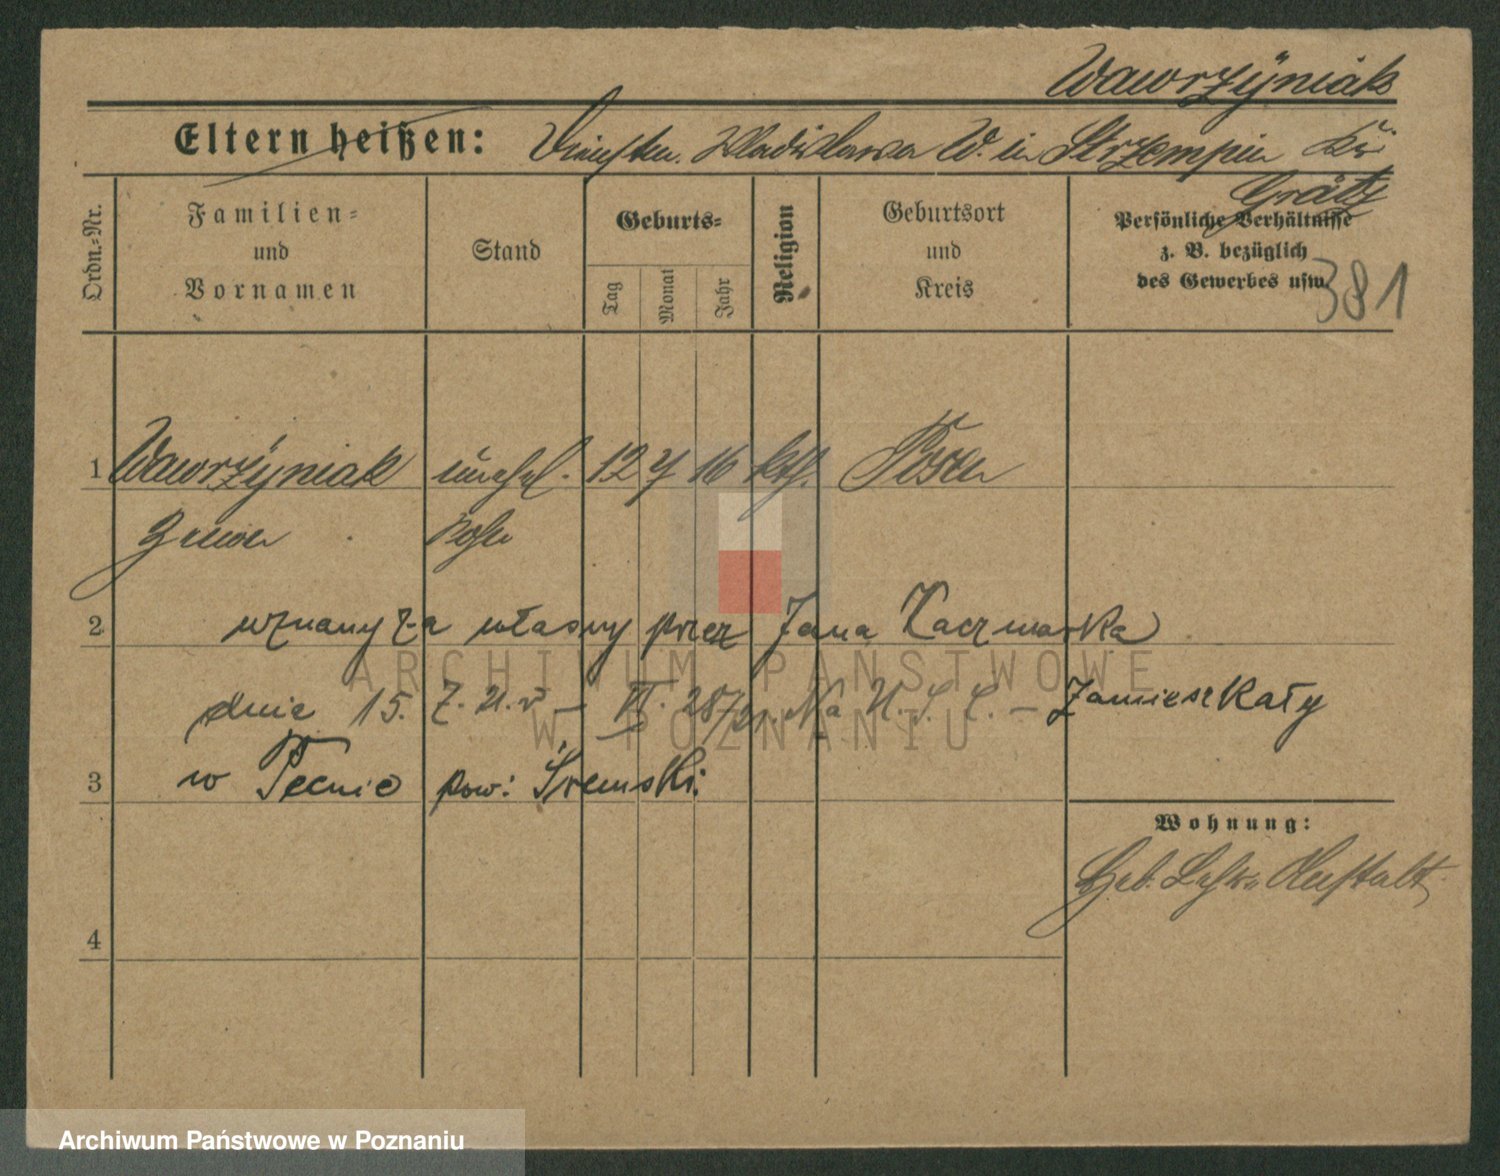 Wawrzÿniak
Eltern heißen: Dienstm. Wladislawa W. in Strzempin Kr.
Grätz
Ordn.-Nr.
Familien-
und
Vornamen
Stand
Geburts-
Tag
Monat
Jahr
Religion
Geburtsort
und
Kreis
Persönliche Verhältnisse
z. B. bezüglich
des Gewerbes usw.
381
1 Wawrzÿniak unehel. 12 7 16 kth. Posen
Sohn
2 uznany za własny przez Jana Kaczmarka
dnia 15. Z. U. v – VI. 28/21. Na U. S. C. – zamieszkały
3 w Pecnie pow: Śremski.
Wohnung:
Heb. Lehr. Anstalt
4
ARCHIWUM PAŃSTWOWE
W POZNANIU
Archiwum Państwowe w Poznaniu